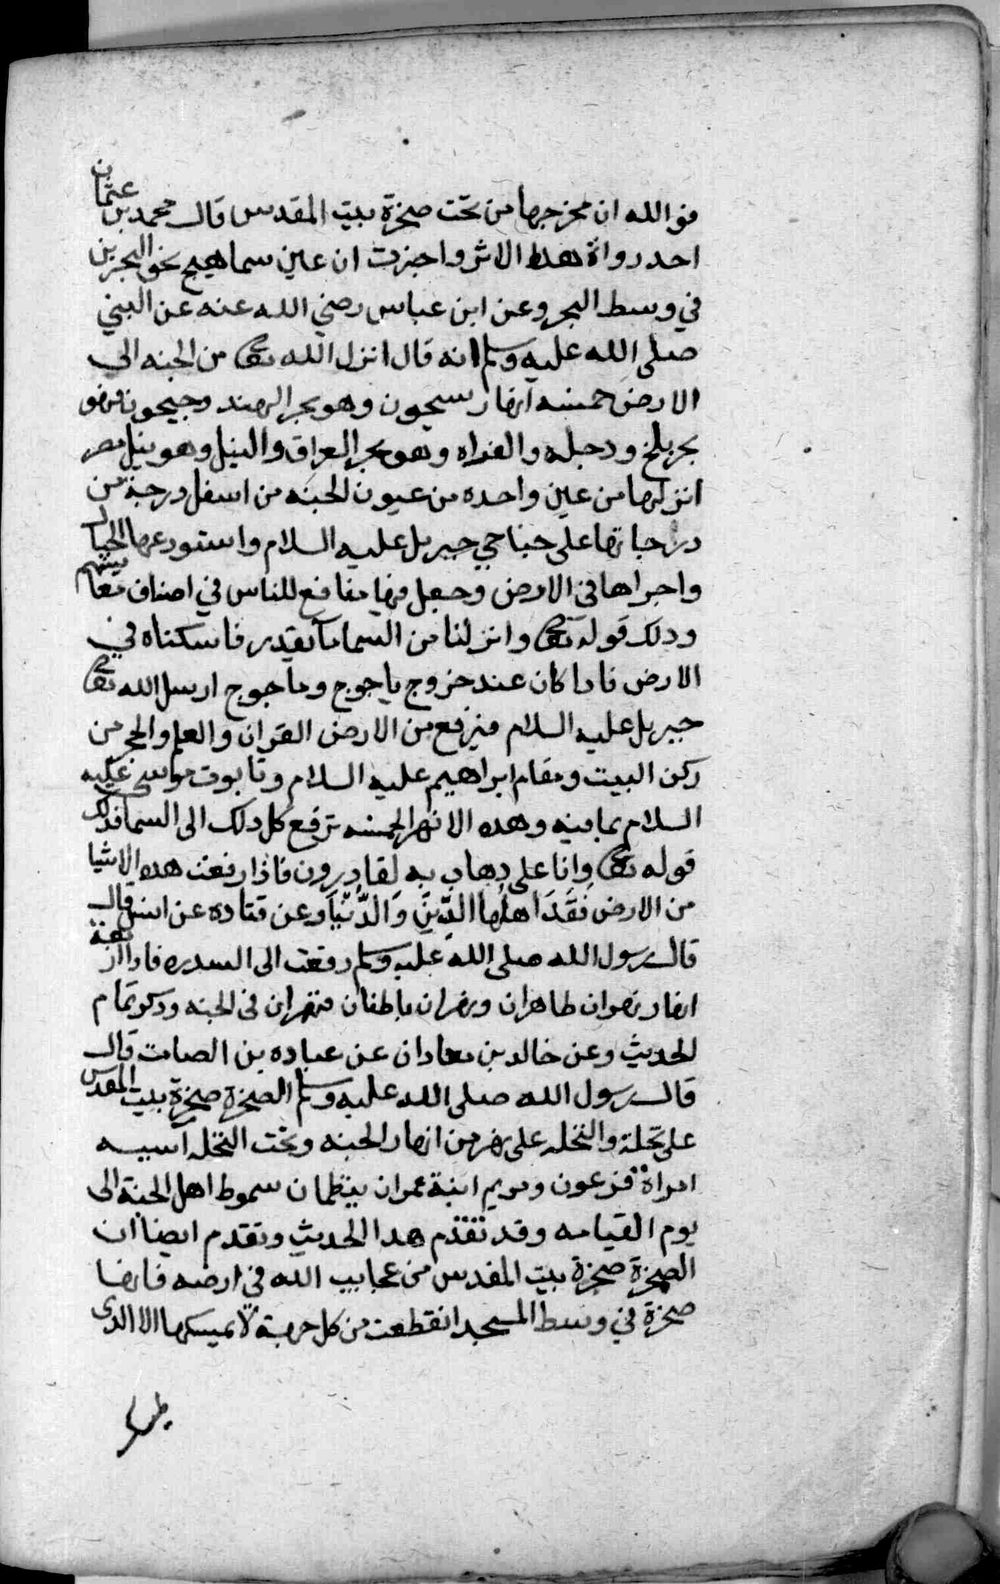 فوالله ان مخرجها من تحت صخرة بيت المقدس قال محمد بن عثمان
احد رواة هذا الاثر واخبرت ان عين سماهيج نحو البحرين
في وسط البحر وعن ابن عباس رضي الله عنه عن النبي
صلى الله عليه وسلم انه قال انزل الله تعالى من الجنه الى
الارض خمسه انهار سيحون وهو بحر الهند وجيحون وهو
بحر بلخ ودجله والفراه وهو بحر العراق والنيل وهو نيل مصر
انزلها من عين واحده من عيون الجنه من اسفل درجة من
درجاتها على جناحي جبريل عليه السلام واستودعها الجبال
واجراها في الارض وجعل فيها منافع للناس في اصناف معايشهم
ودلك قوله تعالى وانزلنا من السما مآ بقدر فاسكناه في
الارض فادا كان عند خروج ياجوج وماجوج ارسل الله تعالى
جبريل عليه السلام فيرفع من الارض القران والعلم والحجر من
ركن البيت ومقام ابراهيم عليه السلام وتابوت موسى عليه
السلام بما فيه وهده الانهر الخمسه ترفع كل دلك الى السما فدلك
قوله تعالى وانا على دهاب به لقادرون فاذا رفعت هده الاشيا
من الارض فَقَدَ اهلُها الدِّينَ وَالدُّنْيَا وعن قتاده عن انس قال
قال رسول الله صلى الله عليه وسلم رفعت الى السدره فادا اربعة
انهار نهران ظاهران ونهران باطنان فنهران في الجنه ودكر تمام
الحديث وعن خالد بن معادان عن عباده بن الصامت قال
قال رسول الله صلى الله عليه وسلم الصخرة صخرة بيت المقدس
على نخلة والنخله على نهر من انهار الجنه وتحت النخله اسيه
امراة فرعون ومريم ابنة عمران ينظمان سموط اهل الجنة الى
يوم القيامه وقد تقدم هدا الحديث وتقدم ايضا ان
الصخرة صخرة بيت المقدس من عجايب الله في ارضه فانها
صخرة في وسط المسجد انقطعت من كل جهة لا يمسكها الا الدى